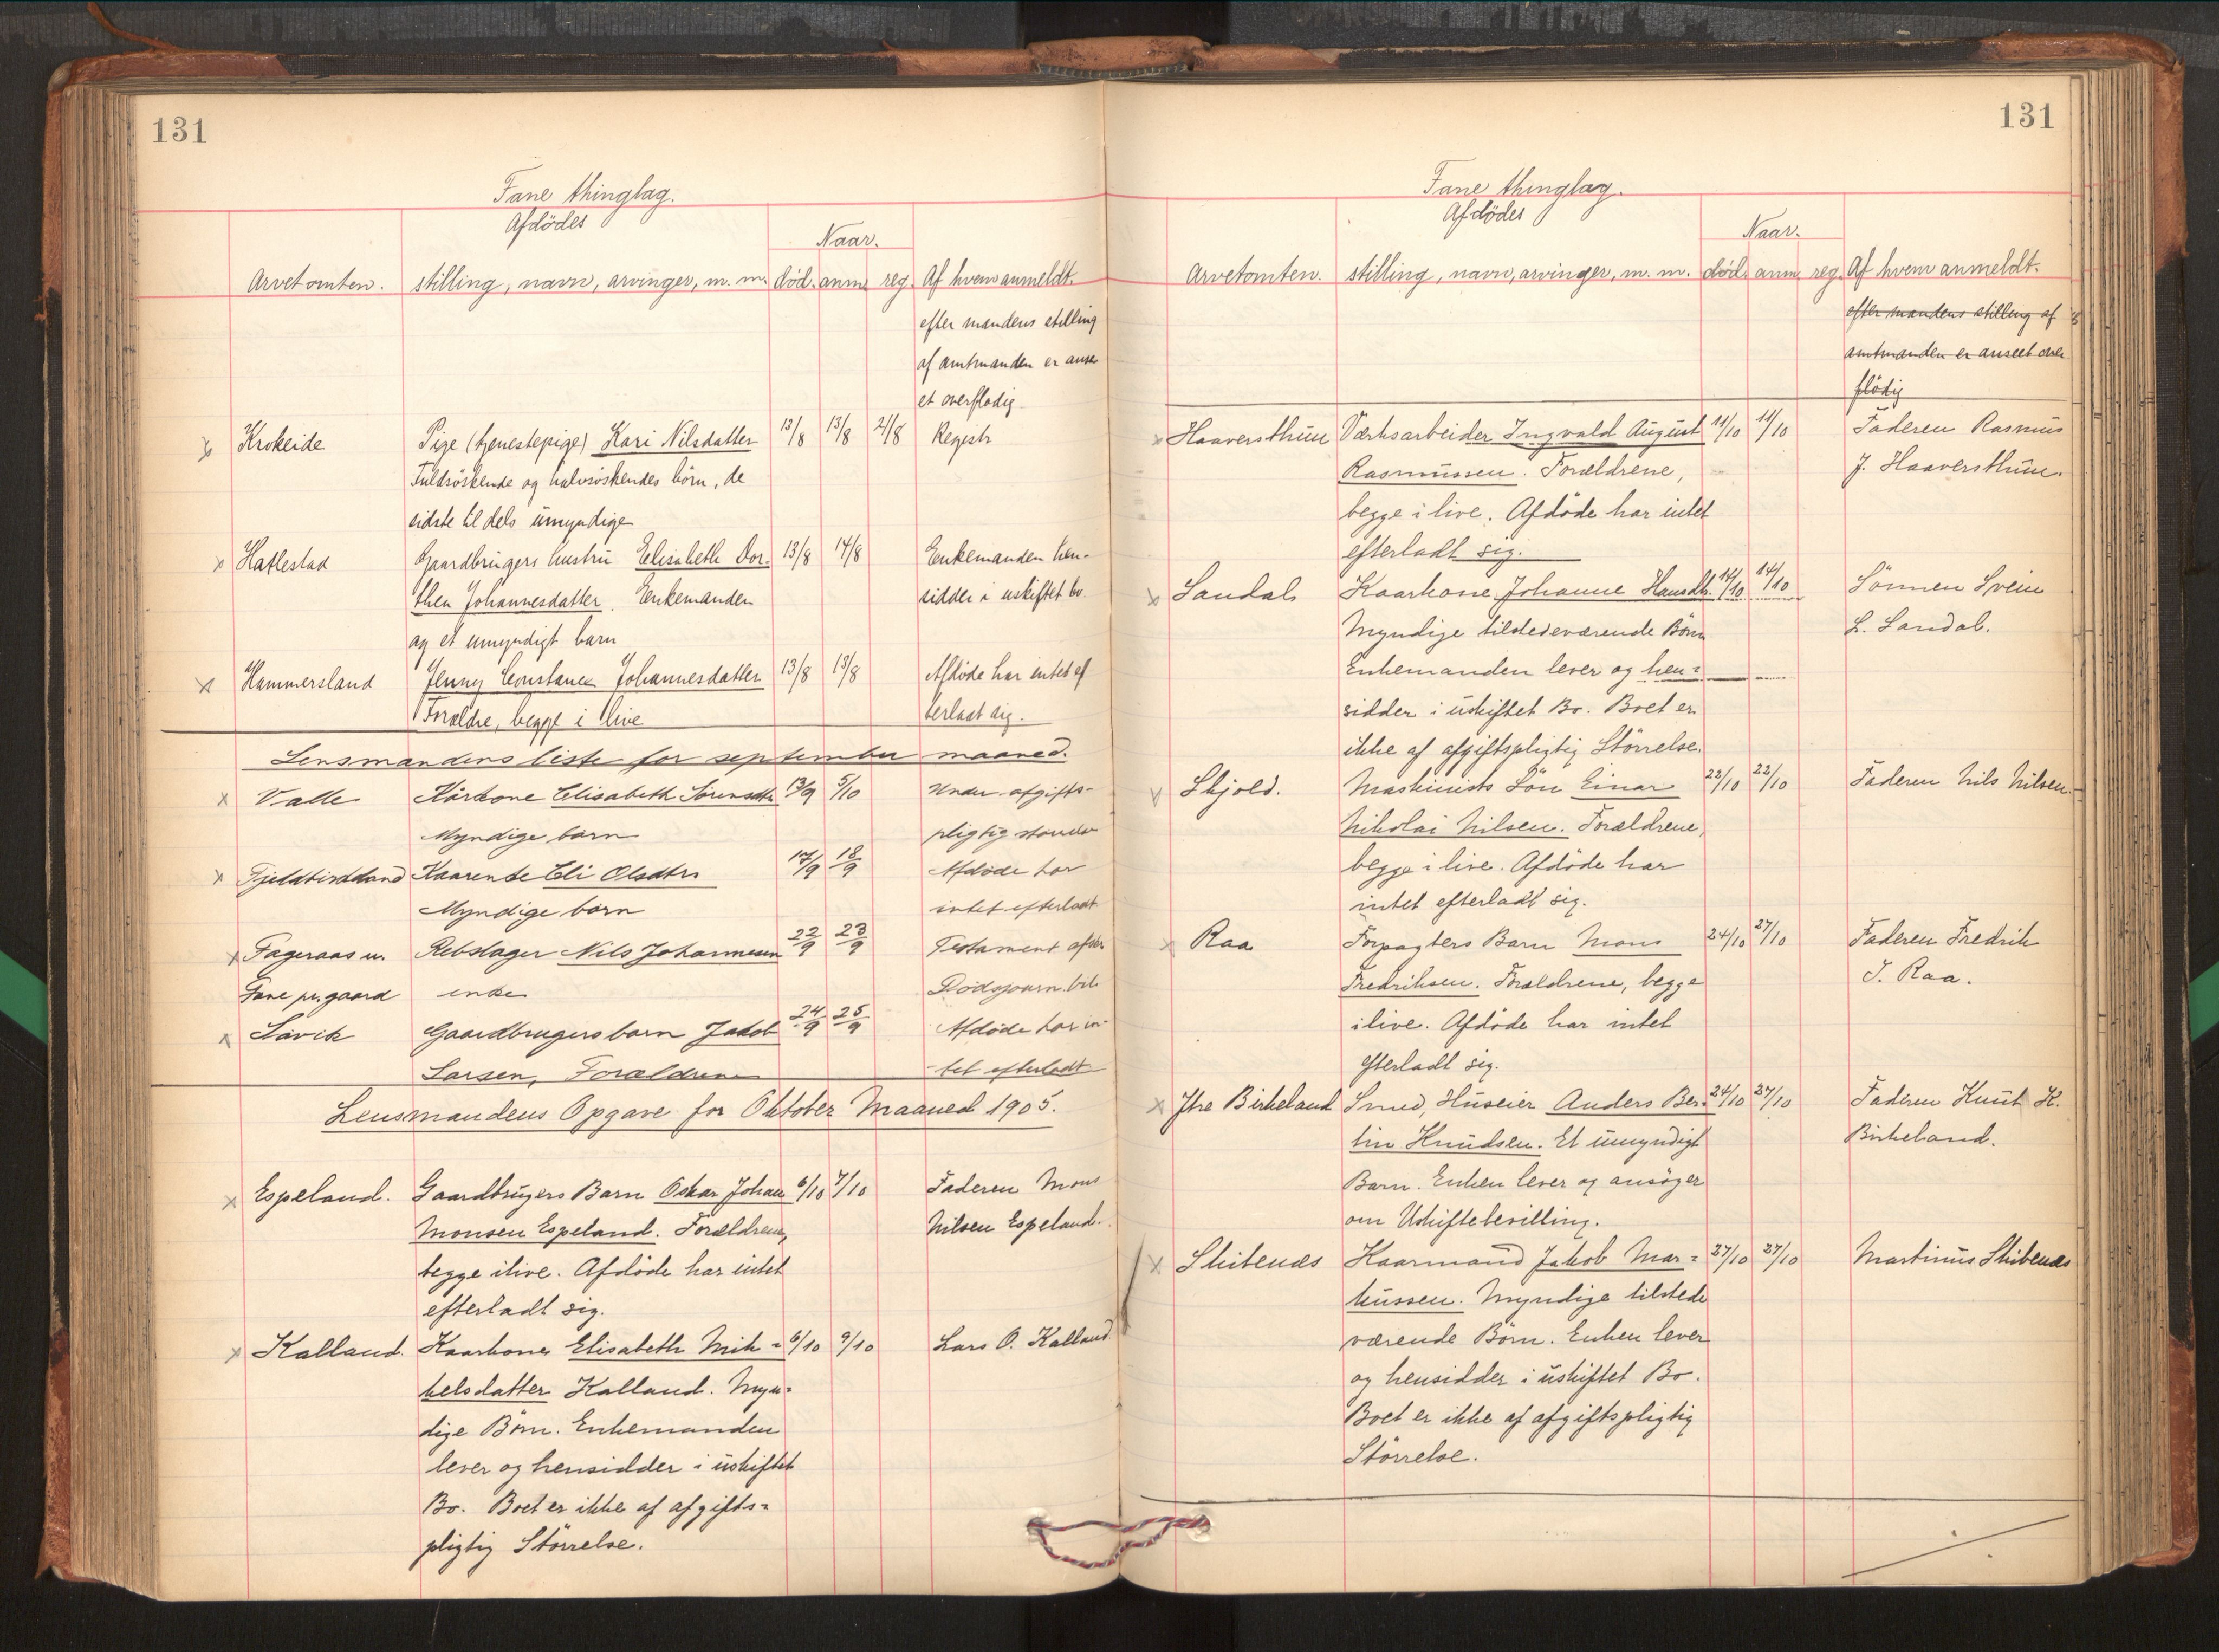 131
Fane thinglag.
Afdödes
Naar.
Arvetomten. stilling, navn, arvinger, m. m. död. anm. reg. Af hvem anmeldt.
efter mandens stilling
af amtmanden er anse
et overflödig
Krokeide Pige (tjenestepige) Kari Nilsdatter 13/8 13/8 21/8 Registr
Fuldsöskende og halvsöskendes börn, de
sidste til dels umyndige
Hatlestad Gaardbrugers hustru Elisabeth Dor- 13/8 14/8 Enkemanden hen-
thea Johannesdatter. Enkemanden sidder i uskiftet bo
og et umyndigt barn
Hammersland Jenny Constance Johannesdatter 13/8 13/8 Afdöde har intet ef
Forældre, begge i live terladt sig.
Lensmandens liste for september maaned.
Valle Kårkone Elisabeth Sörensdtr 13/9 5/10 Under afgifts-
Myndige børn pligtig
Kaarenke Eli Olsdtr 17/9 18/9 Afdöde har
Myndige børn intet efterladt
Fageraas u. Rebslager Nils Johannesen 22/9 23/9 Testament
Fane pr.gaard enke Dödsjourn. bil.
Lavik Gaardbrugers barn Jakob 24/9 25/9 Afdöde har in-
Larsen, Forældrene tet efterladt
Lensmandens Opgave for Oktober Maaned 1905.
Espeland. Gaardbrugers Barn Oskar Johan 6/10 7/10 Faderen Mons
Monsen Espeland. Forældrene, Nilsen Espeland.
begge ilive. Afdöde har intet
efterladt sig.
Kalland. Kaarkone Elisabeth Mik= 6/10 9/10 Lars O. Kalland
kelsdatter Kalland. Myn=
dige Börn. Enkemanden
lever og hensidder i uskiftet
Bo. Boet er ikke af afgifts=
pligtig Störrelse.
131
Fane thinglag.
Afdödes
Naar.
Arvetomten. stilling, navn, arvinger, m. m. död. anm. reg. Af hvem anmeldt.
efter mandens stilling af
amtmanden er anseet over
flödig
Haaversthun Værksarbeider Ingvald August 11/10 11/10 Faderen Rasmus
Rasmussen. Forældrene, J. Haaversthun.
begge i live. Afdöde har intet
efterladt sig.
Sandal Kaarkone Johanne Hansdtr. 14/10 14/10 Sönnen Svein
Myndige tilstedeværende Börn L. Sandal.
Enkemanden lever og hen=
sidder i uskiftet Bo. Boet er
ikke af afgiftspligtig Störrelse.
Skjold. Maskinists Sön Einar 22/10 22/10 Faderen Nils Nilsen.
Nikolai Nilsen. Forældrene,
begge i live. Afdöde har
intet efterladt sig.
Raa Forpagters Barn Mons 24/10 27/10 Faderen Fredrik
Fredriksen. Forældrene, begge J. Raa.
ilive. Afdöde har intet
efterladt sig.
Ytre Birkeland Smed, Huseier Anders Ber- 24/10 27/10 Faderen Knut K.
tin Knudsen. Et umyndigt Birkeland.
Barn. Enken lever og ansöger
om Uskiftebevilling.
Skibenæs Kaarmand Jakob Mar= 27/10 27/10 Martinus Skibenæs
kussen. Myndige tilstede
værende Börn. Enken lever
og hensidder i uskiftet Bo.
Boet er ikke af afgiftspligtig
Störrelse.